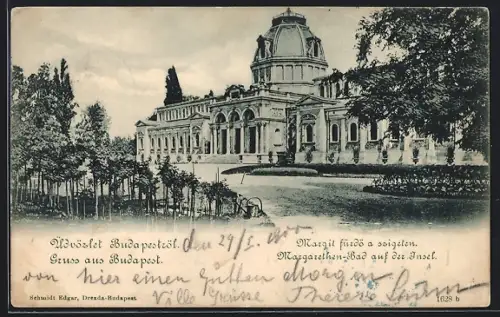 Üdvözlet Budapestről. den 29/5. 1900
Gruss aus Budapest.
Margit fürdő a szigeten.
Margarethen-Bad auf der Insel.
von hier einen guten Morgen
Viele Grüsse Therese
Schmidt Edgar, Dresda-Budapest.
1628 b